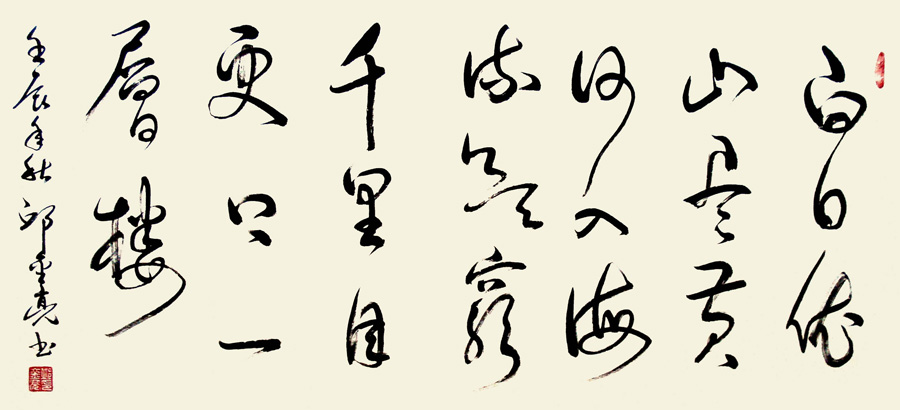 白日依
山尽黄
河入海
流欲窮
千里目
更上一
層楼
壬辰年秋邱金亮书